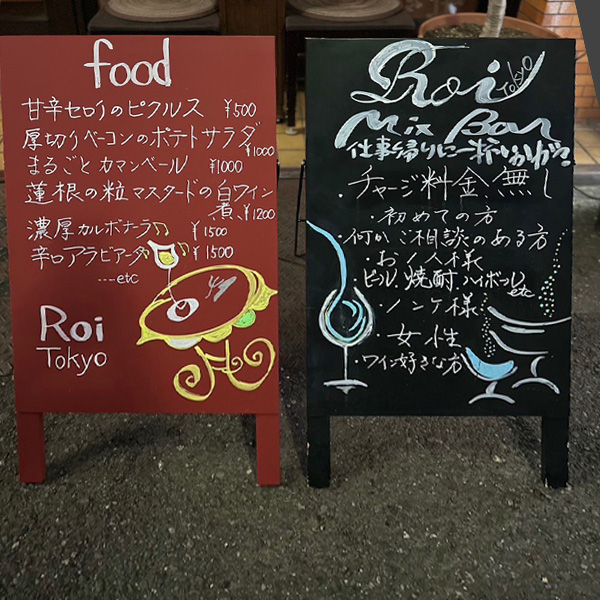 food
甘辛セロリのピクルス ¥500
厚切りベーコンのポテトサラダ
¥1000
まるごとカマンベール ¥1000
蓮根の粒マスタードの白ワイン
煮、¥1200
濃厚カルボナーラ ¥1500
辛口アラビアータ ¥1500
....etc
Roi
Tokyo
Roi
Tokyo
Mix Bar
仕事帰りに一杯いかが?
・チャージ料金無し
・初めての方
・何かご相談のある方
・お1人様
・ビール、焼酎、ハイボール
etc
・ノンケ様
・女性
・ワイン好きな方